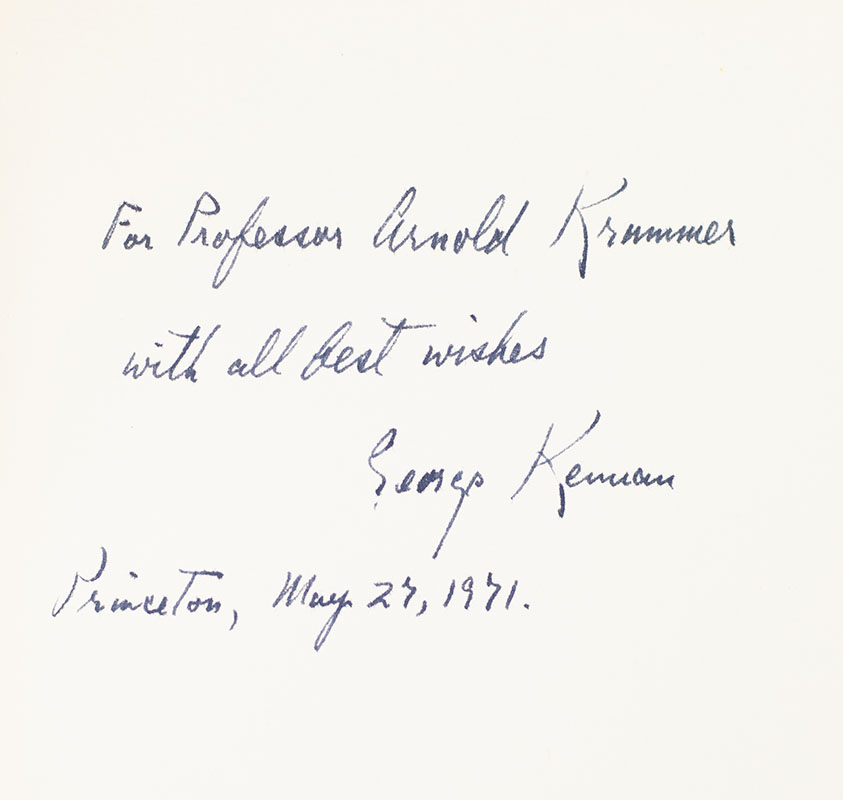 For Professor Arnold Krammer
with all best wishes
George Kennan
Princeton, May 27, 1971.